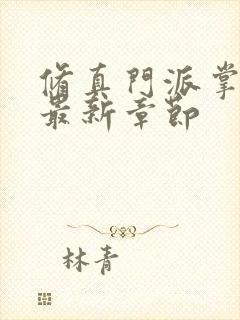 脩真門派掌
最新章節
林青